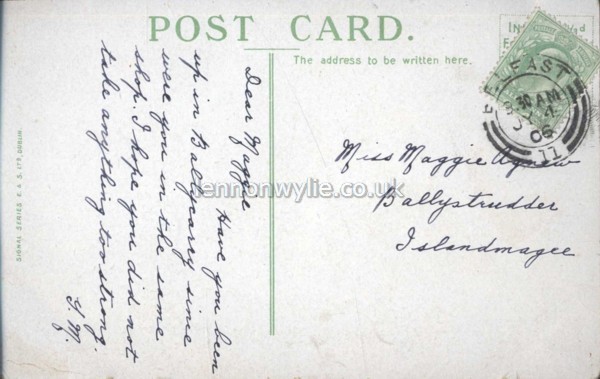 POST CARD.
The address to be written here.
BELFAST
30 AM
06
11
Miss Maggie Agnew
Ballystrudder
Islandmagee
Dear Maggie
Have you been
up in Ballycarry since
were you in the same
shop. I hope you did not
take anything too strong.
J. M.
SIGNAL SERIES E. & S. LTD, DUBLIN.
lennonwylie.co.uk